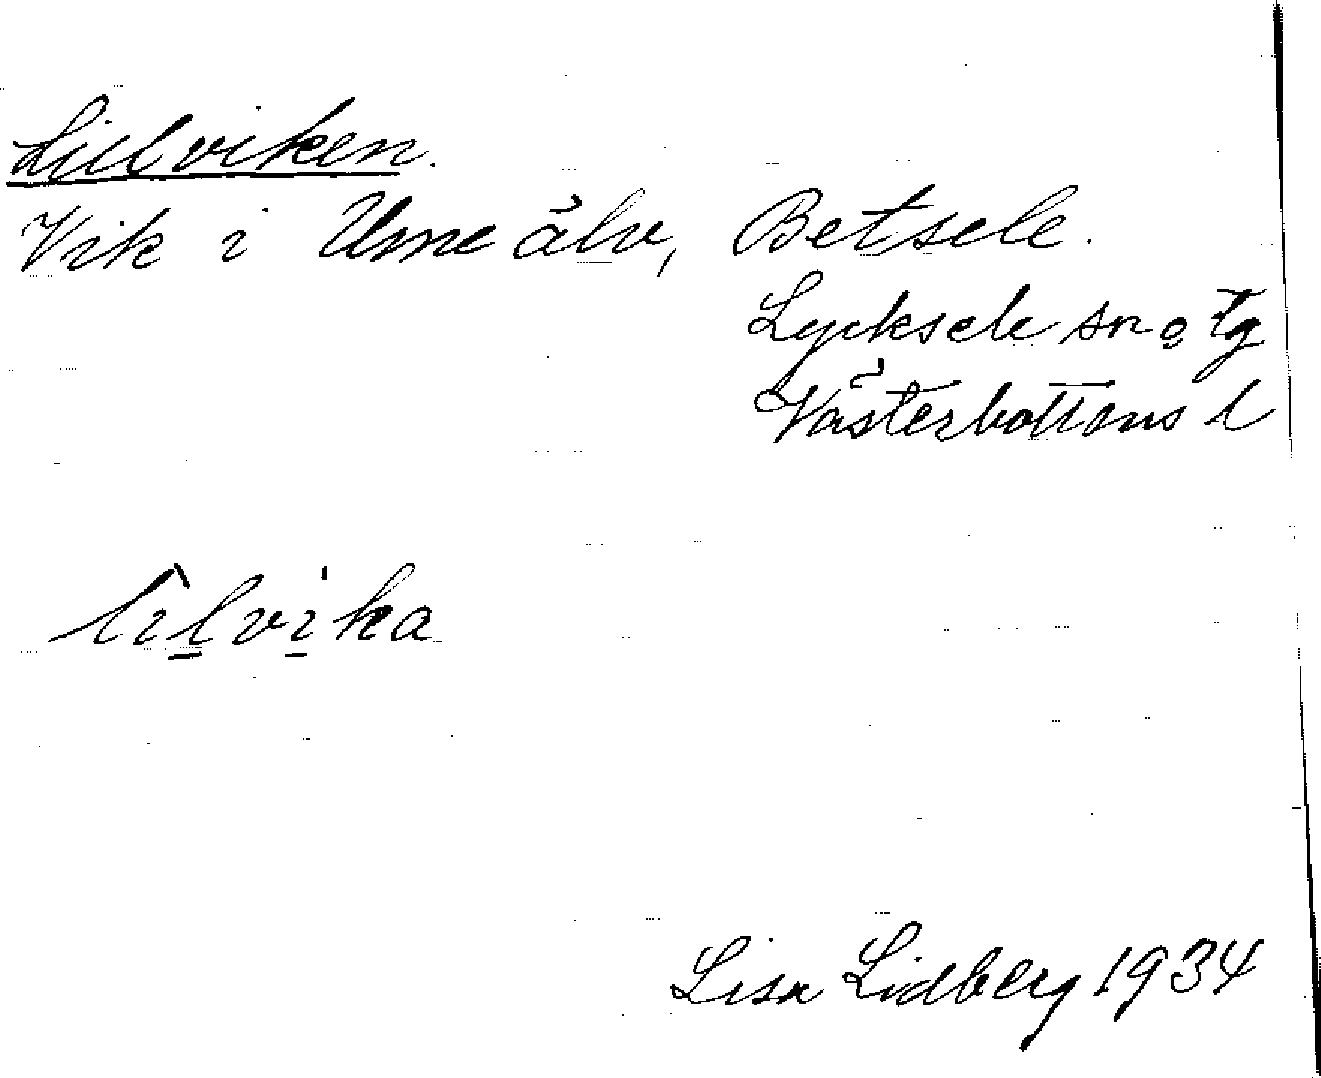 Lillviken.
Vik i Ume älv, Betsele.
Lycksele sn o tg
Västerbottens l
lìlvika
Lisa Lidberg 1934